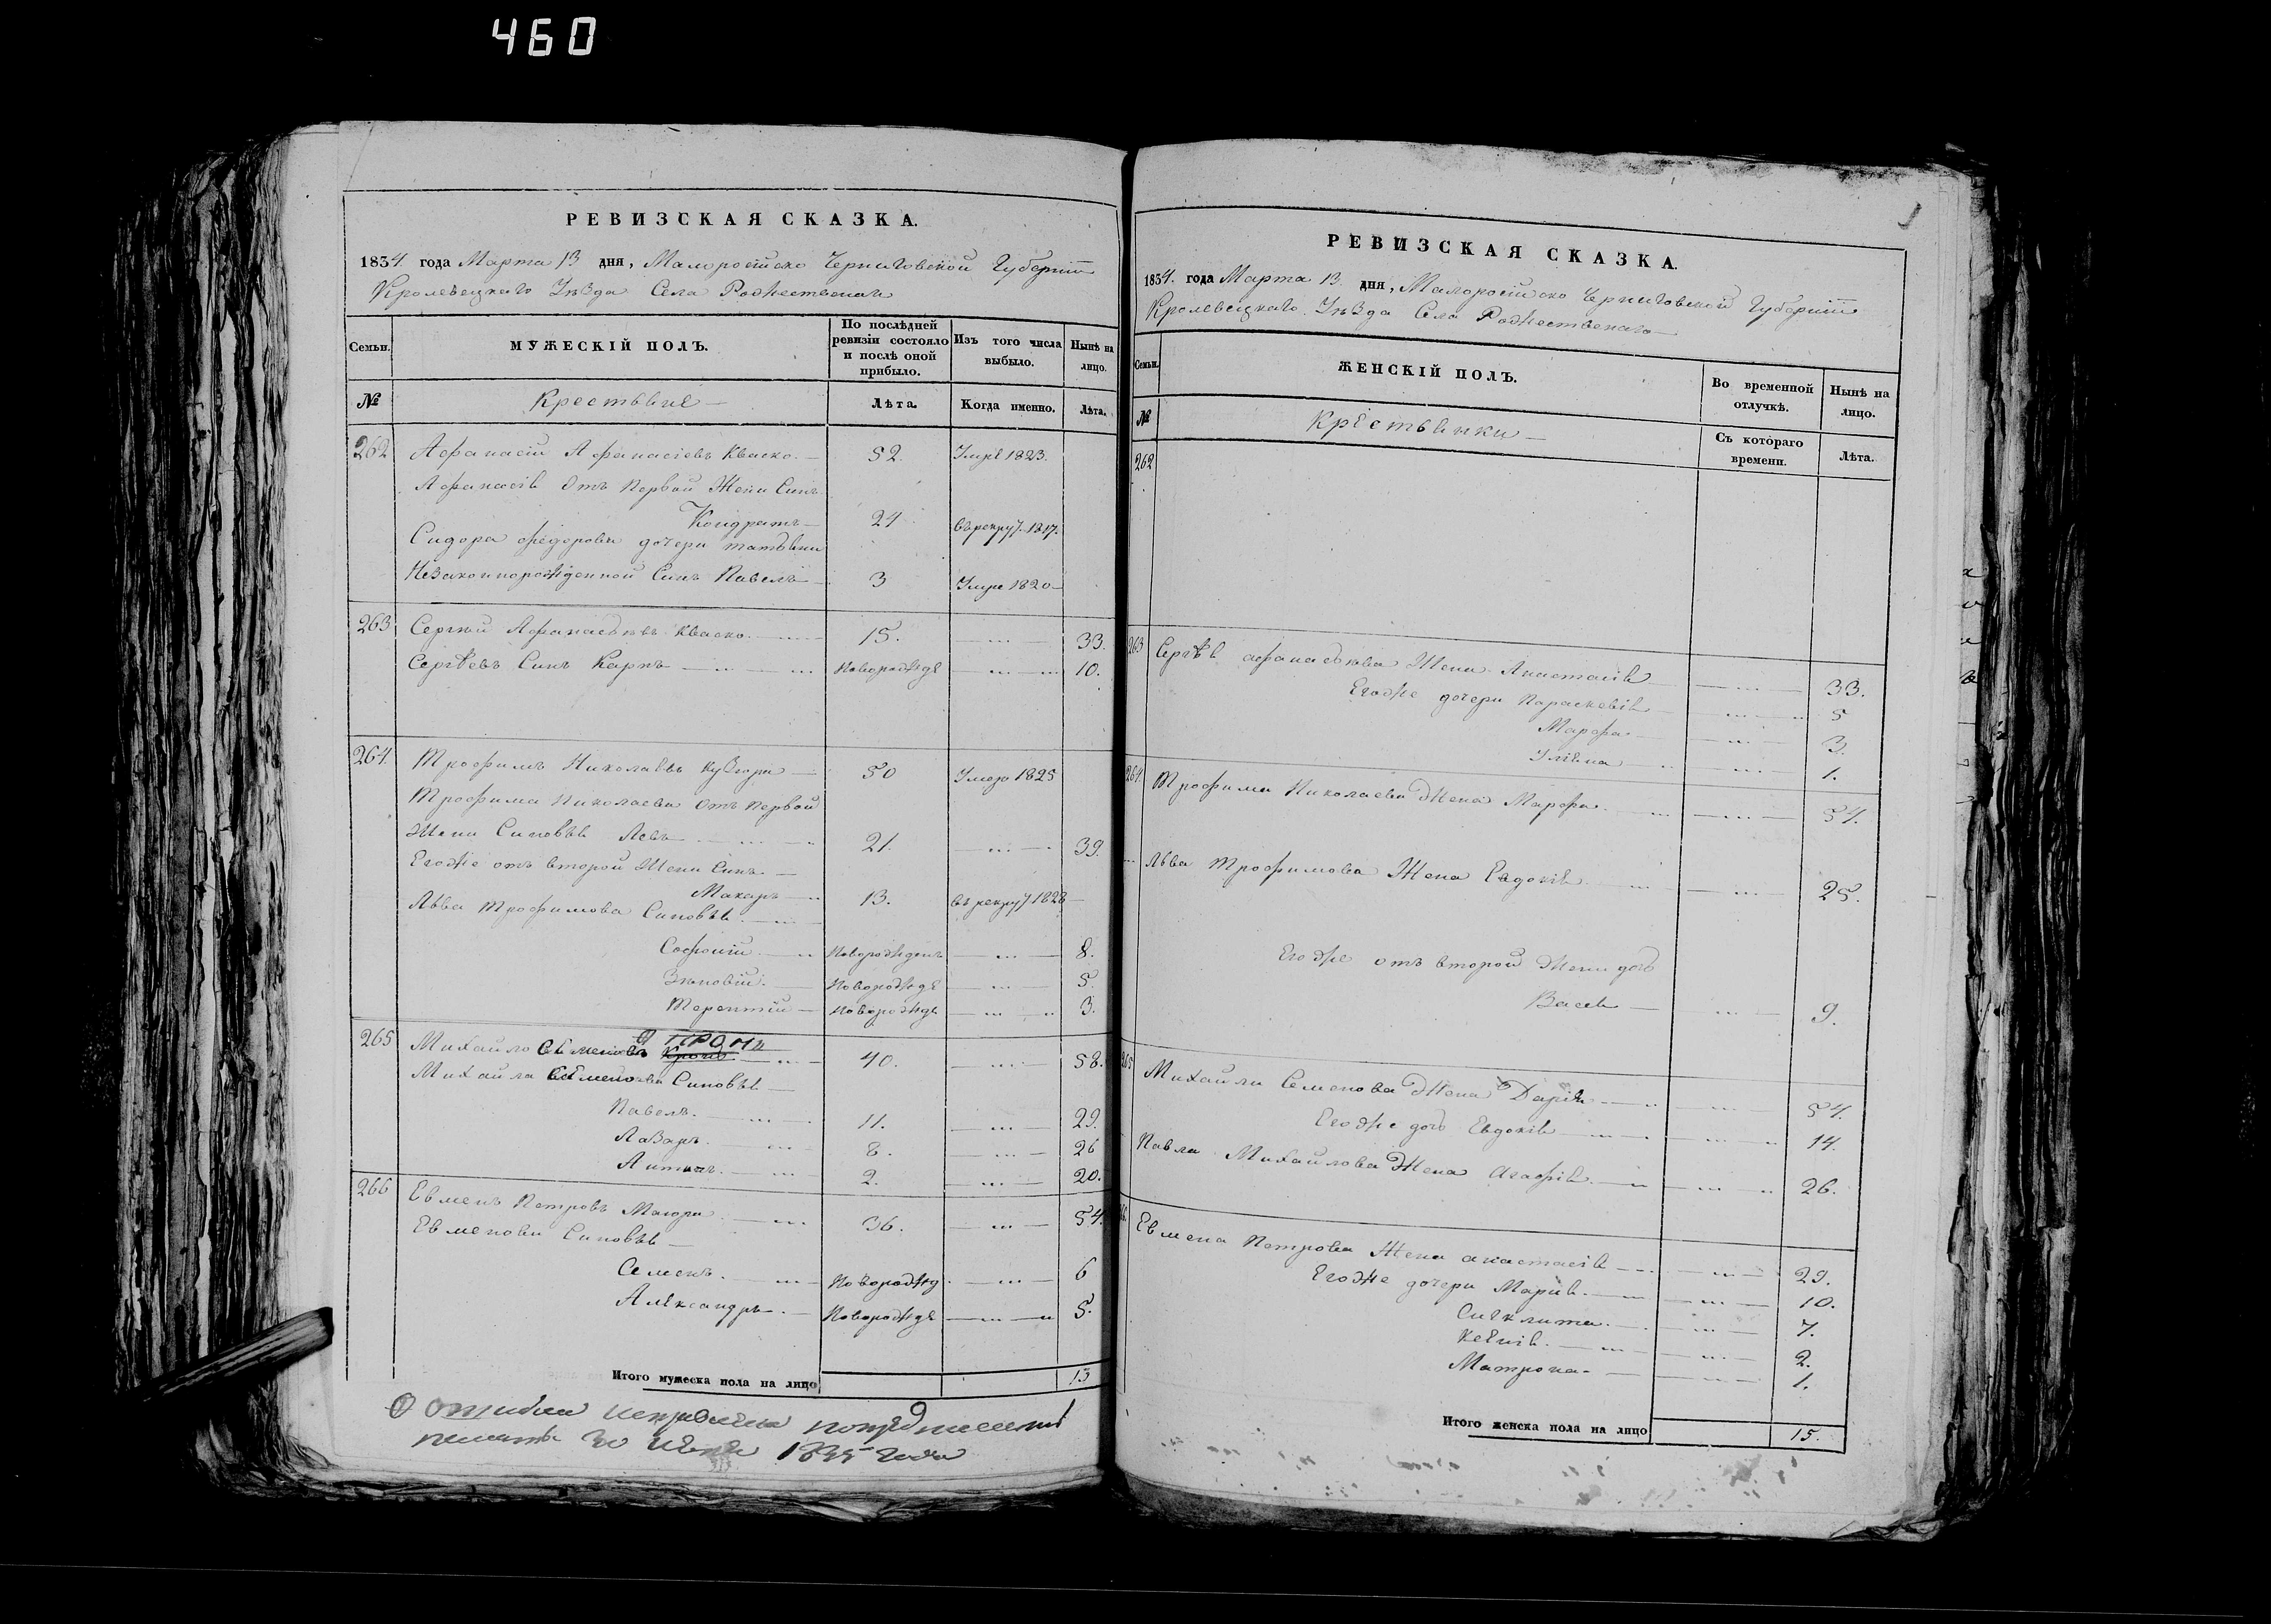 460
РЕВИЗСКАЯ СКАЗКА.
1834 года Марта 13 дня, Малоросійско Черниговской Губерніи
Кролевецкаго Уѣзда Села Рождественаго
Семьи. МУЖЕСКІЙ ПОЛЪ. По послѣдней ревизіи состояло и послѣ оной прибыло. Изъ того числа выбыло. Нынѣ на лицо.
№ Крестьяне Лѣта. Когда именно. Лѣта.
262 Афанасій Афанасіевъ Кваско. 52. Умре 1823.
Афанасія Отъ Первой Жени Синъ
Кондратъ 24 въ рекру 1817.
Сидора Федорова дочери татьяни
Незаконнорожденной Синъ Павелъ 3 Умре 1820
263 Сергѣй Афанасьевъ Кваско 15. 33.
Сергѣевъ Синъ Карпъ Новорожде 10.
264. Трофимъ Николаевъ 50 Умеръ 1825
Трофима Николаева Отъ Первой
Жени Синовья Левъ 21. 39.
Егоже отъ второй Жени Синъ
Макаръ 13. въ рекру 1828
Льва Трофимова Синовья
Софоній Новорожденъ 8.
Зѣновій. Новорожде 5.
Терентій Новорожде 3.
265 Михайло Семеновъ Проня 40. 58.
Михайла Семенова Синовья
Павелъ. 11. 29.
Лазаръ. 8. 26
Антонъ. 2. 20.
266 Евменъ Петровъ 36. 54.
Евменови Синовья
Семенъ. Новорожд 6
Александръ. Новорожде 5.
Итого мужеска пола на лицо 13
О Ошибки исправлена
1835 года
РЕВИЗСКАЯ СКАЗКА.
1834. года Марта 13. дня, Малоросійско Черниговской Губерніи
Кролевецкаго Уѣзда Села Рождественаго
Семьи. ЖЕНСКІЙ ПОЛЪ. Во временной отлучкѣ. Нынѣ на лицо.
№ Крестьянки Съ котораго времени. Лѣта.
262
263 Сергѣя афанасьева Жена Анастасія 33.
Егоже дочери Параскевія 5
Марфа 3.
Уліяна 1.
264 Трофима Николаева Жена Марфа 54.
Льва Трофимова Жена Евдокія 25.
Егоже отъ второй Жени дочь
Васса 9.
265 Михайли Семенова Жена Дарія 54.
Егоже дочь Евдокія 14.
Павла Михайлова Жена Агафія 26.
266. Евмена Петрова Жена анастасія 29.
Егоже дочери Марія. 10.
Сигклита. 7.
Ксенія. 2.
Матрона 1.
Итого женска пола на лицо 15.